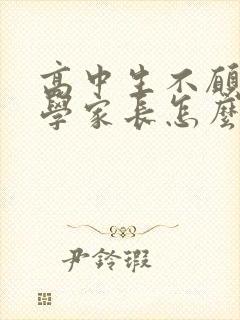 高中生不願
學家長怎麼
尹鈴瑕